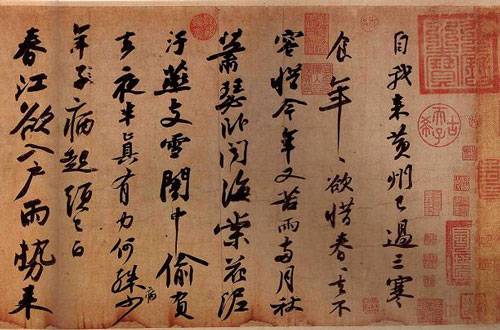 自我来黄州已過三寒
食年〻欲惜春〻去不
容惜今年又苦雨兩月秋
蕭瑟卧聞海棠花泥
汙燕支雪闇中偷負
去夜半真有力何殊病少
年子病起頭已白
春江欲入户雨勢来
古希天子